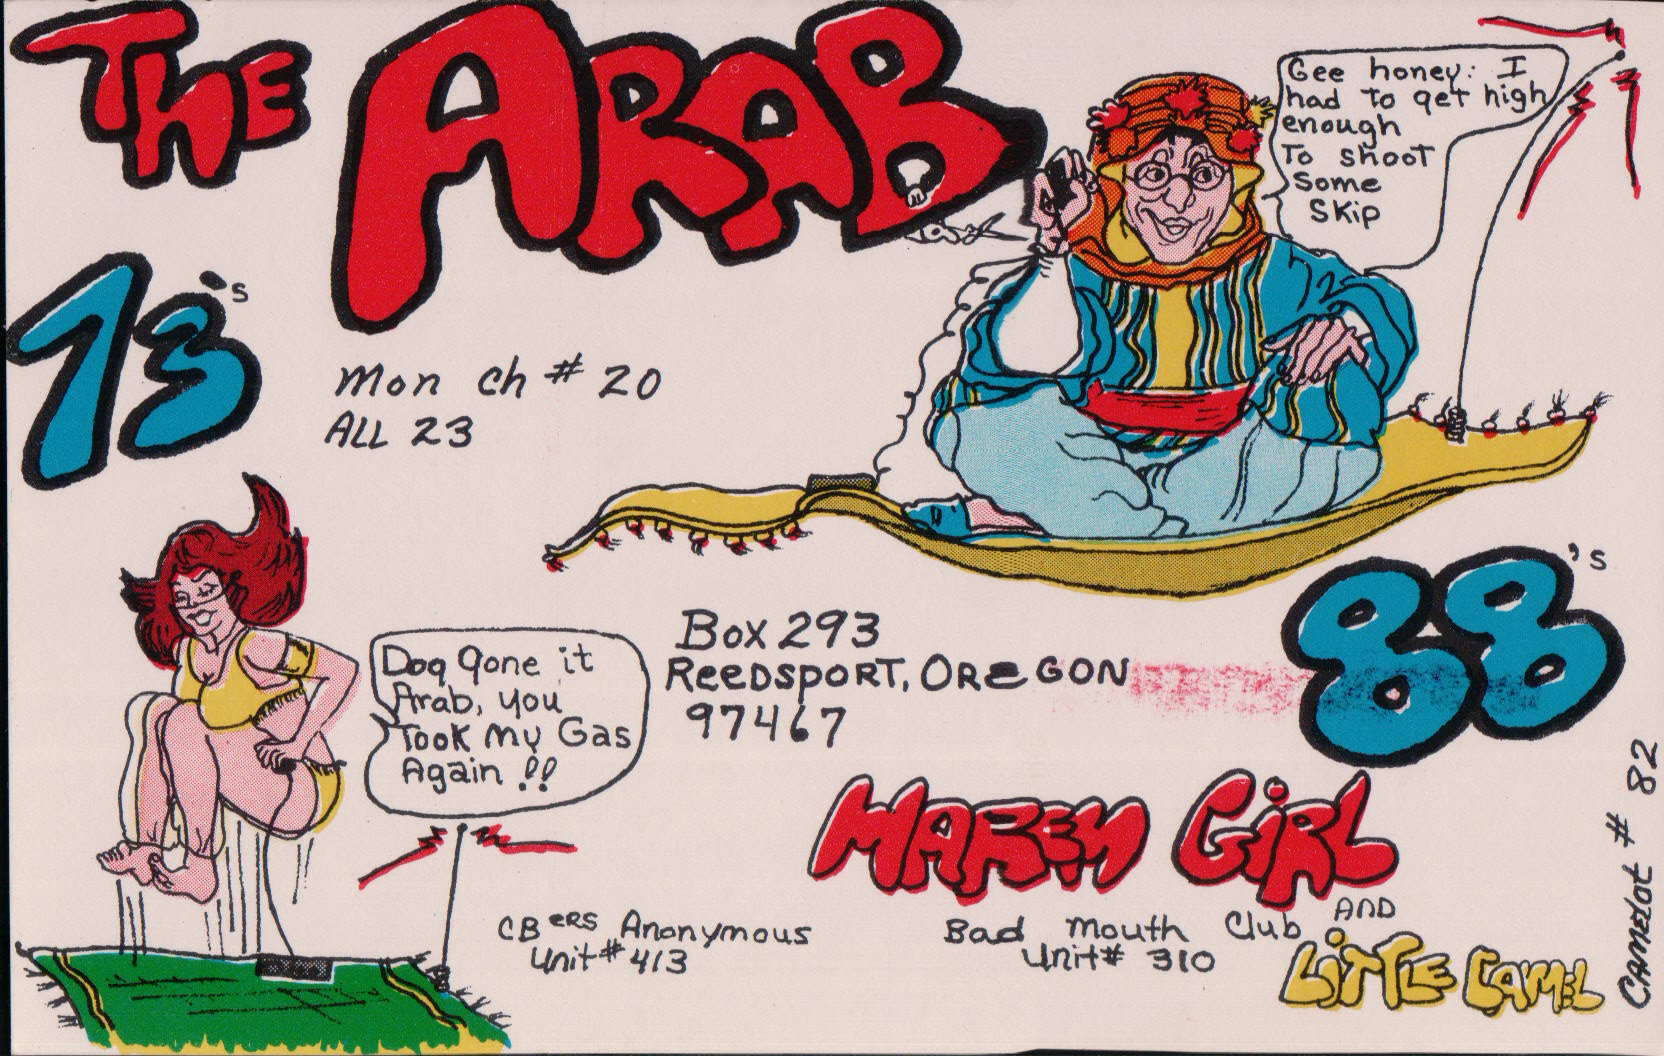 THE ARAB
Gee honey: I
had to get high
enough
To shoot
some
skip
73's
Mon ch # 20
ALL 23
88's
Box 293
REEDSPORT, OREGON
97467
Dog gone it
Arab, you
Took my Gas
Again !!
HAREM GIRL
AND
LITTLE CAMEL
CBERS Anonymous
Unit # 413
Bad Mouth Club
Unit # 310
CAMELOT # 82